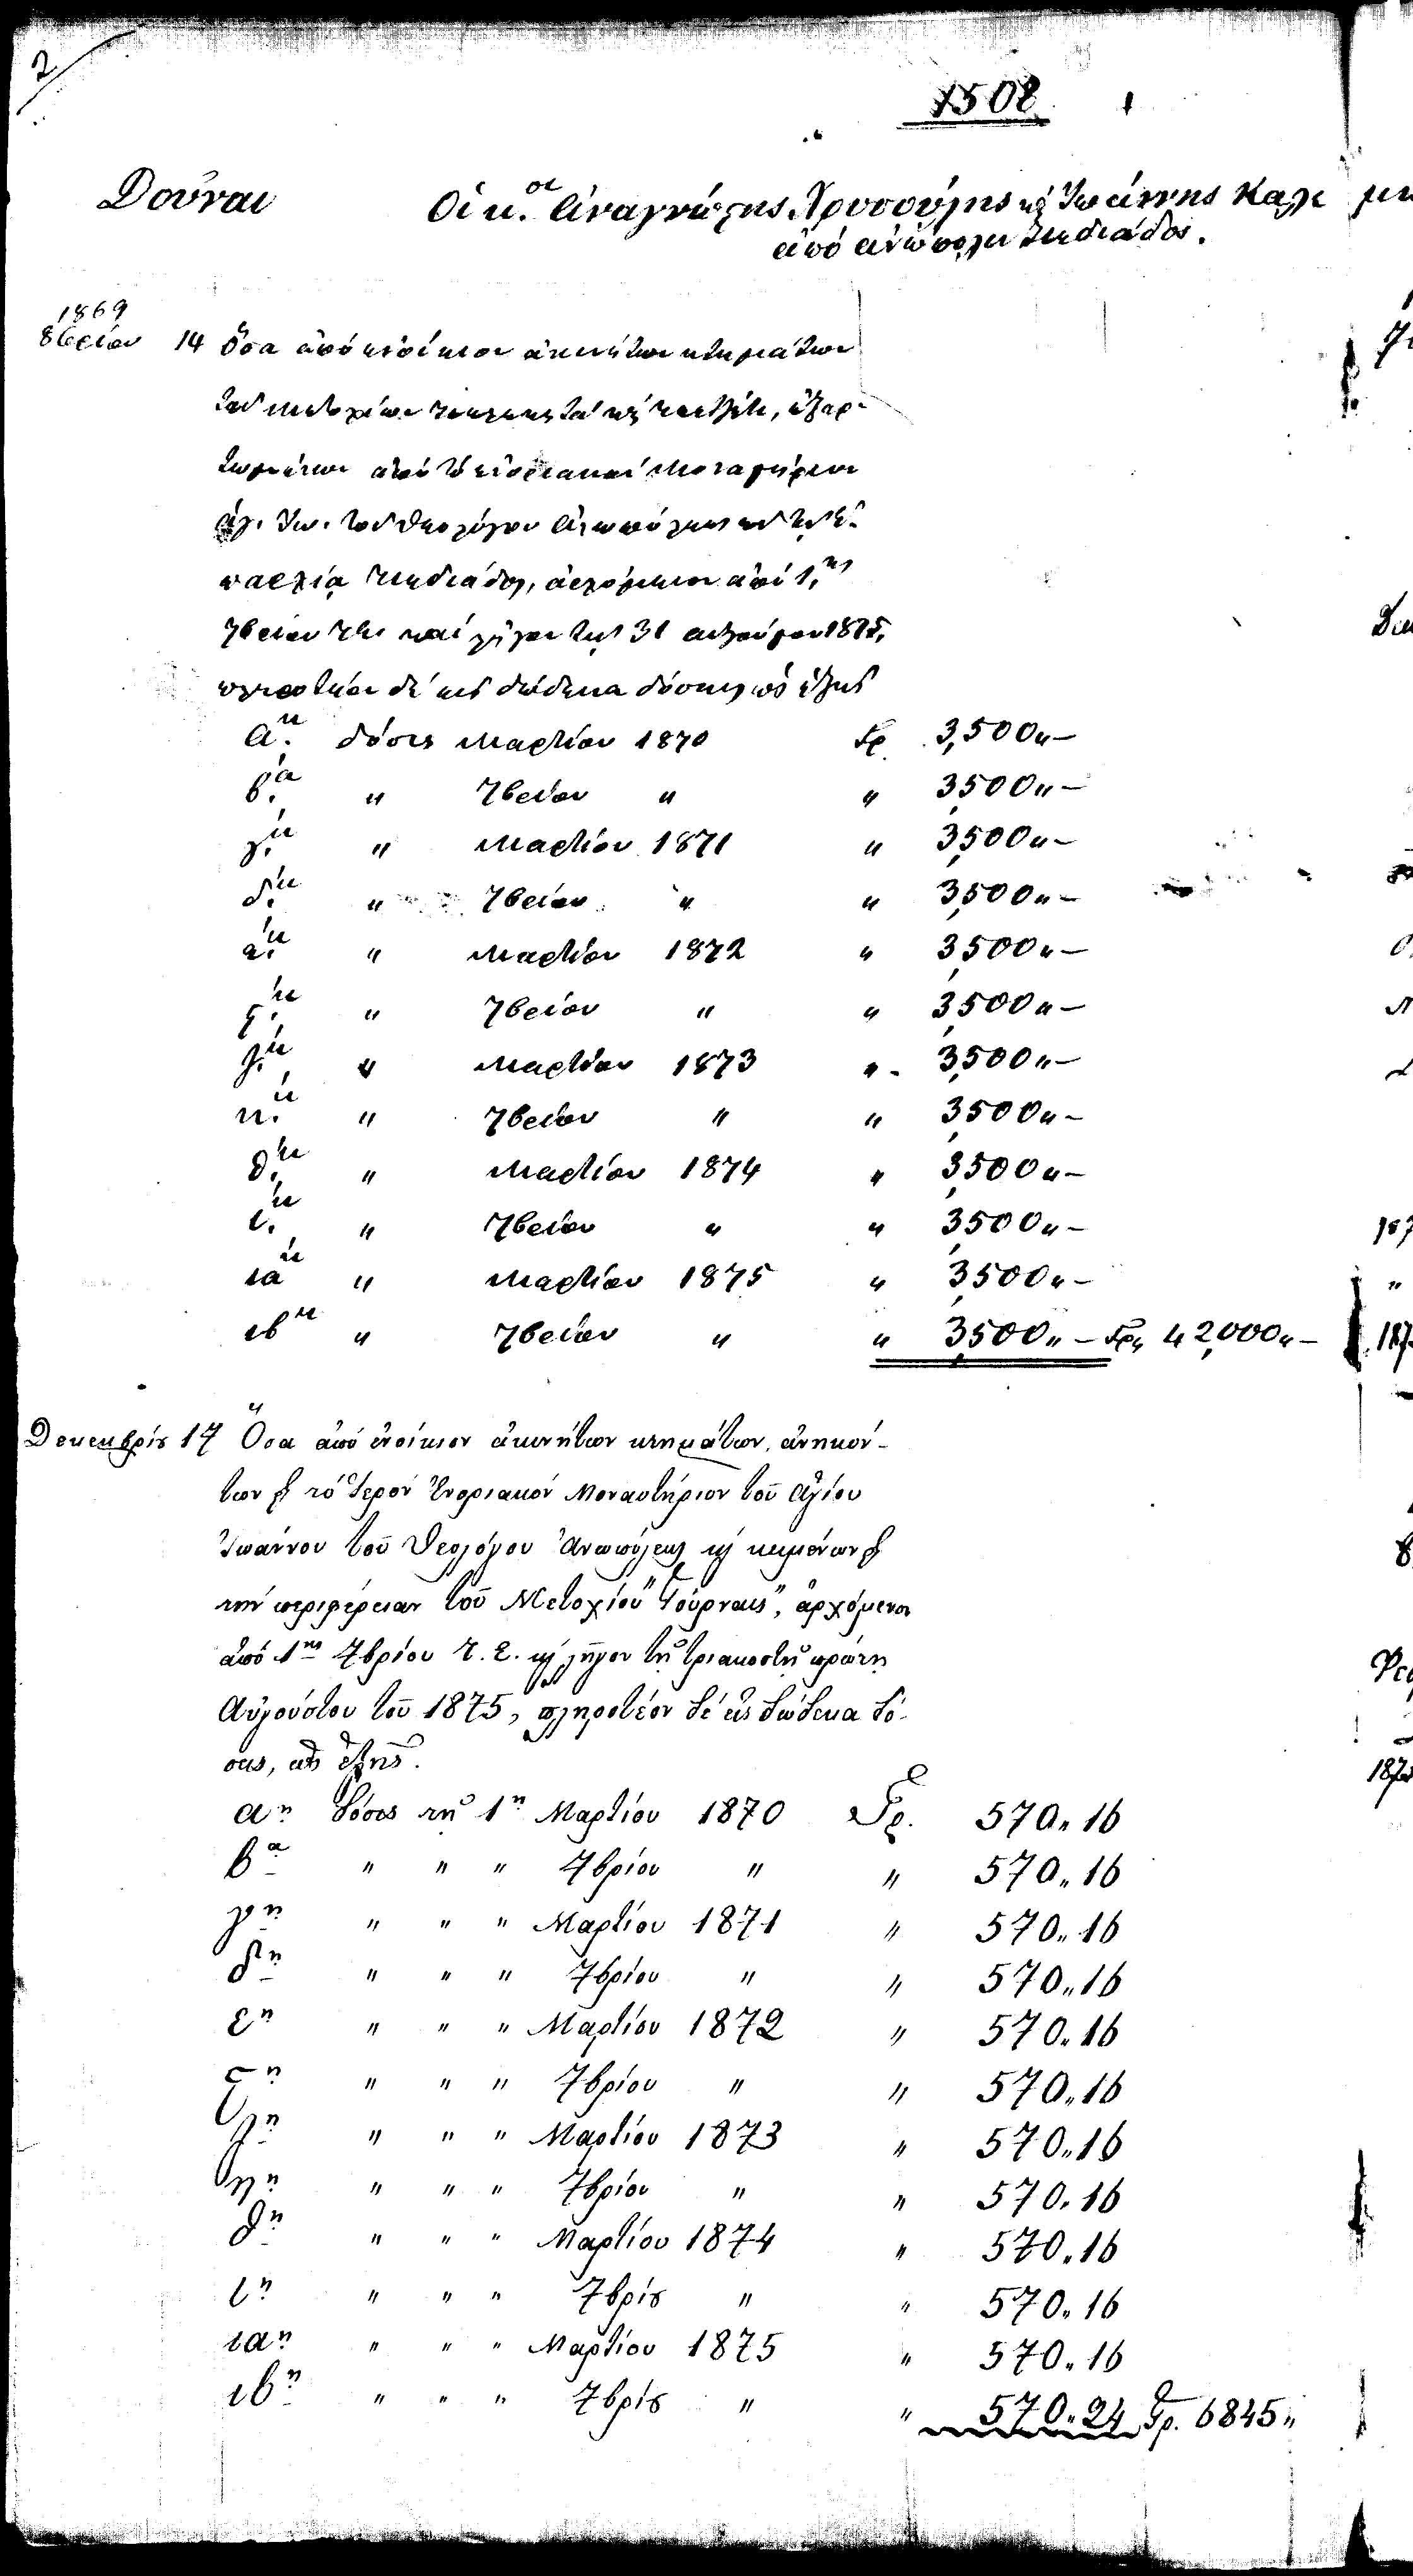 2
1508
Δοῦναι Οἱ κ.οι Ἀναγνώστης Χρυσούλης κὶ Ἰωάννης Καλι
ἀπό ἀνώπολιν Πεδιάδος.
1869
8βρίου 14 Ὅσα ἀπό ἐνοίκιον ἀκινήτων κτημάτων
τοῦ μετοχίου
ἀπό τό ἐνοριακόν Μοναστήριον
ἁγ. Ἰω. τοῦ Θεολόγου Ἀνωπόλεως
ἐπαρχίᾳ Πεδιάδος, ἀρχόμενον ἀπό 1.ης
7βρίου καί λῆγον τῇ 31 αὐγούστου 1875,
πληρωτέον δέ εἰς δώδεκα δόσεις ὡς ἑξῆς
α.η δόσις Μαρτίου 1870 Γρ. 3,500„–
β.α „ 7βρίου „ „ 3,500„–
γ.η „ Μαρτίου 1871 „ 3,500„–
δ.η „ 7βρίου „ „ 3,500„–
ε.η „ Μαρτίου 1872 „ 3,500„–
ς.η „ 7βρίου „ „ 3,500„–
ζ.η „ Μαρτίου 1873 „ 3,500„–
η.η „ 7βρίου „ „ 3,500„–
θ.η „ Μαρτίου 1874 „ 3,500„–
ι.η „ 7βρίου „ „ 3,500„–
ια η „ Μαρτίου 1875 „ 3,500„–
ιβ η „ 7βρίου „ „ 3,500„– Γρ„ 42,000„–
Δεκεμβρίου 17 Ὅσα ἀπό ἐνοίκιον ἀκινήτων κτημάτων, ἀνηκόν-
των εἰς τό Ἱερόν Ἐνοριακόν Μοναστήριον τοῦ Ἁγίου
Ἰωάννου τοῦ Θεολόγου Ἀνωπόλεως κὶ κειμένων εἰς
τήν περιφέρειαν τοῦ Μετοχίου "Γούρναις", ἀρχόμενον
ἀπό 1ης 7βρίου τ. ἔ. κὶ λῆγον τῇ τριακοστῇ πρώτῃ
Αὐγούστου τοῦ 1875, πληρωτέον δέ εἰς δώδεκα δό-
σεις, ὡς ἑξῆς.
αη δόσις τῇ 1η Μαρτίου 1870 Γρ. 570„16
βα „ „ „ 7βρίου „ „ 570„16
γη „ „ „ Μαρτίου 1871 „ 570„16
δη „ „ „ 7βρίου „ „ 570„16
εη „ „ „ Μαρτίου 1872 „ 570„16
ςη „ „ „ 7βρίου „ „ 570„16
ζη „ „ „ Μαρτίου 1873 „ 570„16
ηη „ „ „ 7βρίου „ „ 570„16
θη „ „ „ Μαρτίου 1874 „ 570„16
ιη „ „ „ 7βρίου „ „ 570„16
ιαη „ „ „ Μαρτίου 1875 „ 570„16
ιβη „ „ „ 7βρίου „ „ 570„24 Γρ. 6845„